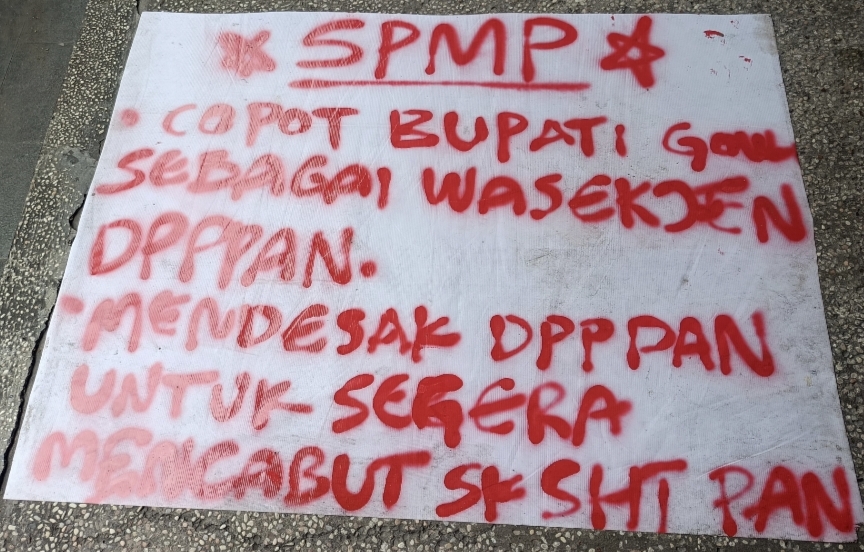 SPMP
• COPOT BUPATI GOWA
SEBAGAI WASEKJEN
DPPPAN.
• MENDESAK DPPPAN
UNTUK SEGERA
MENCABUT SK SHT PAN